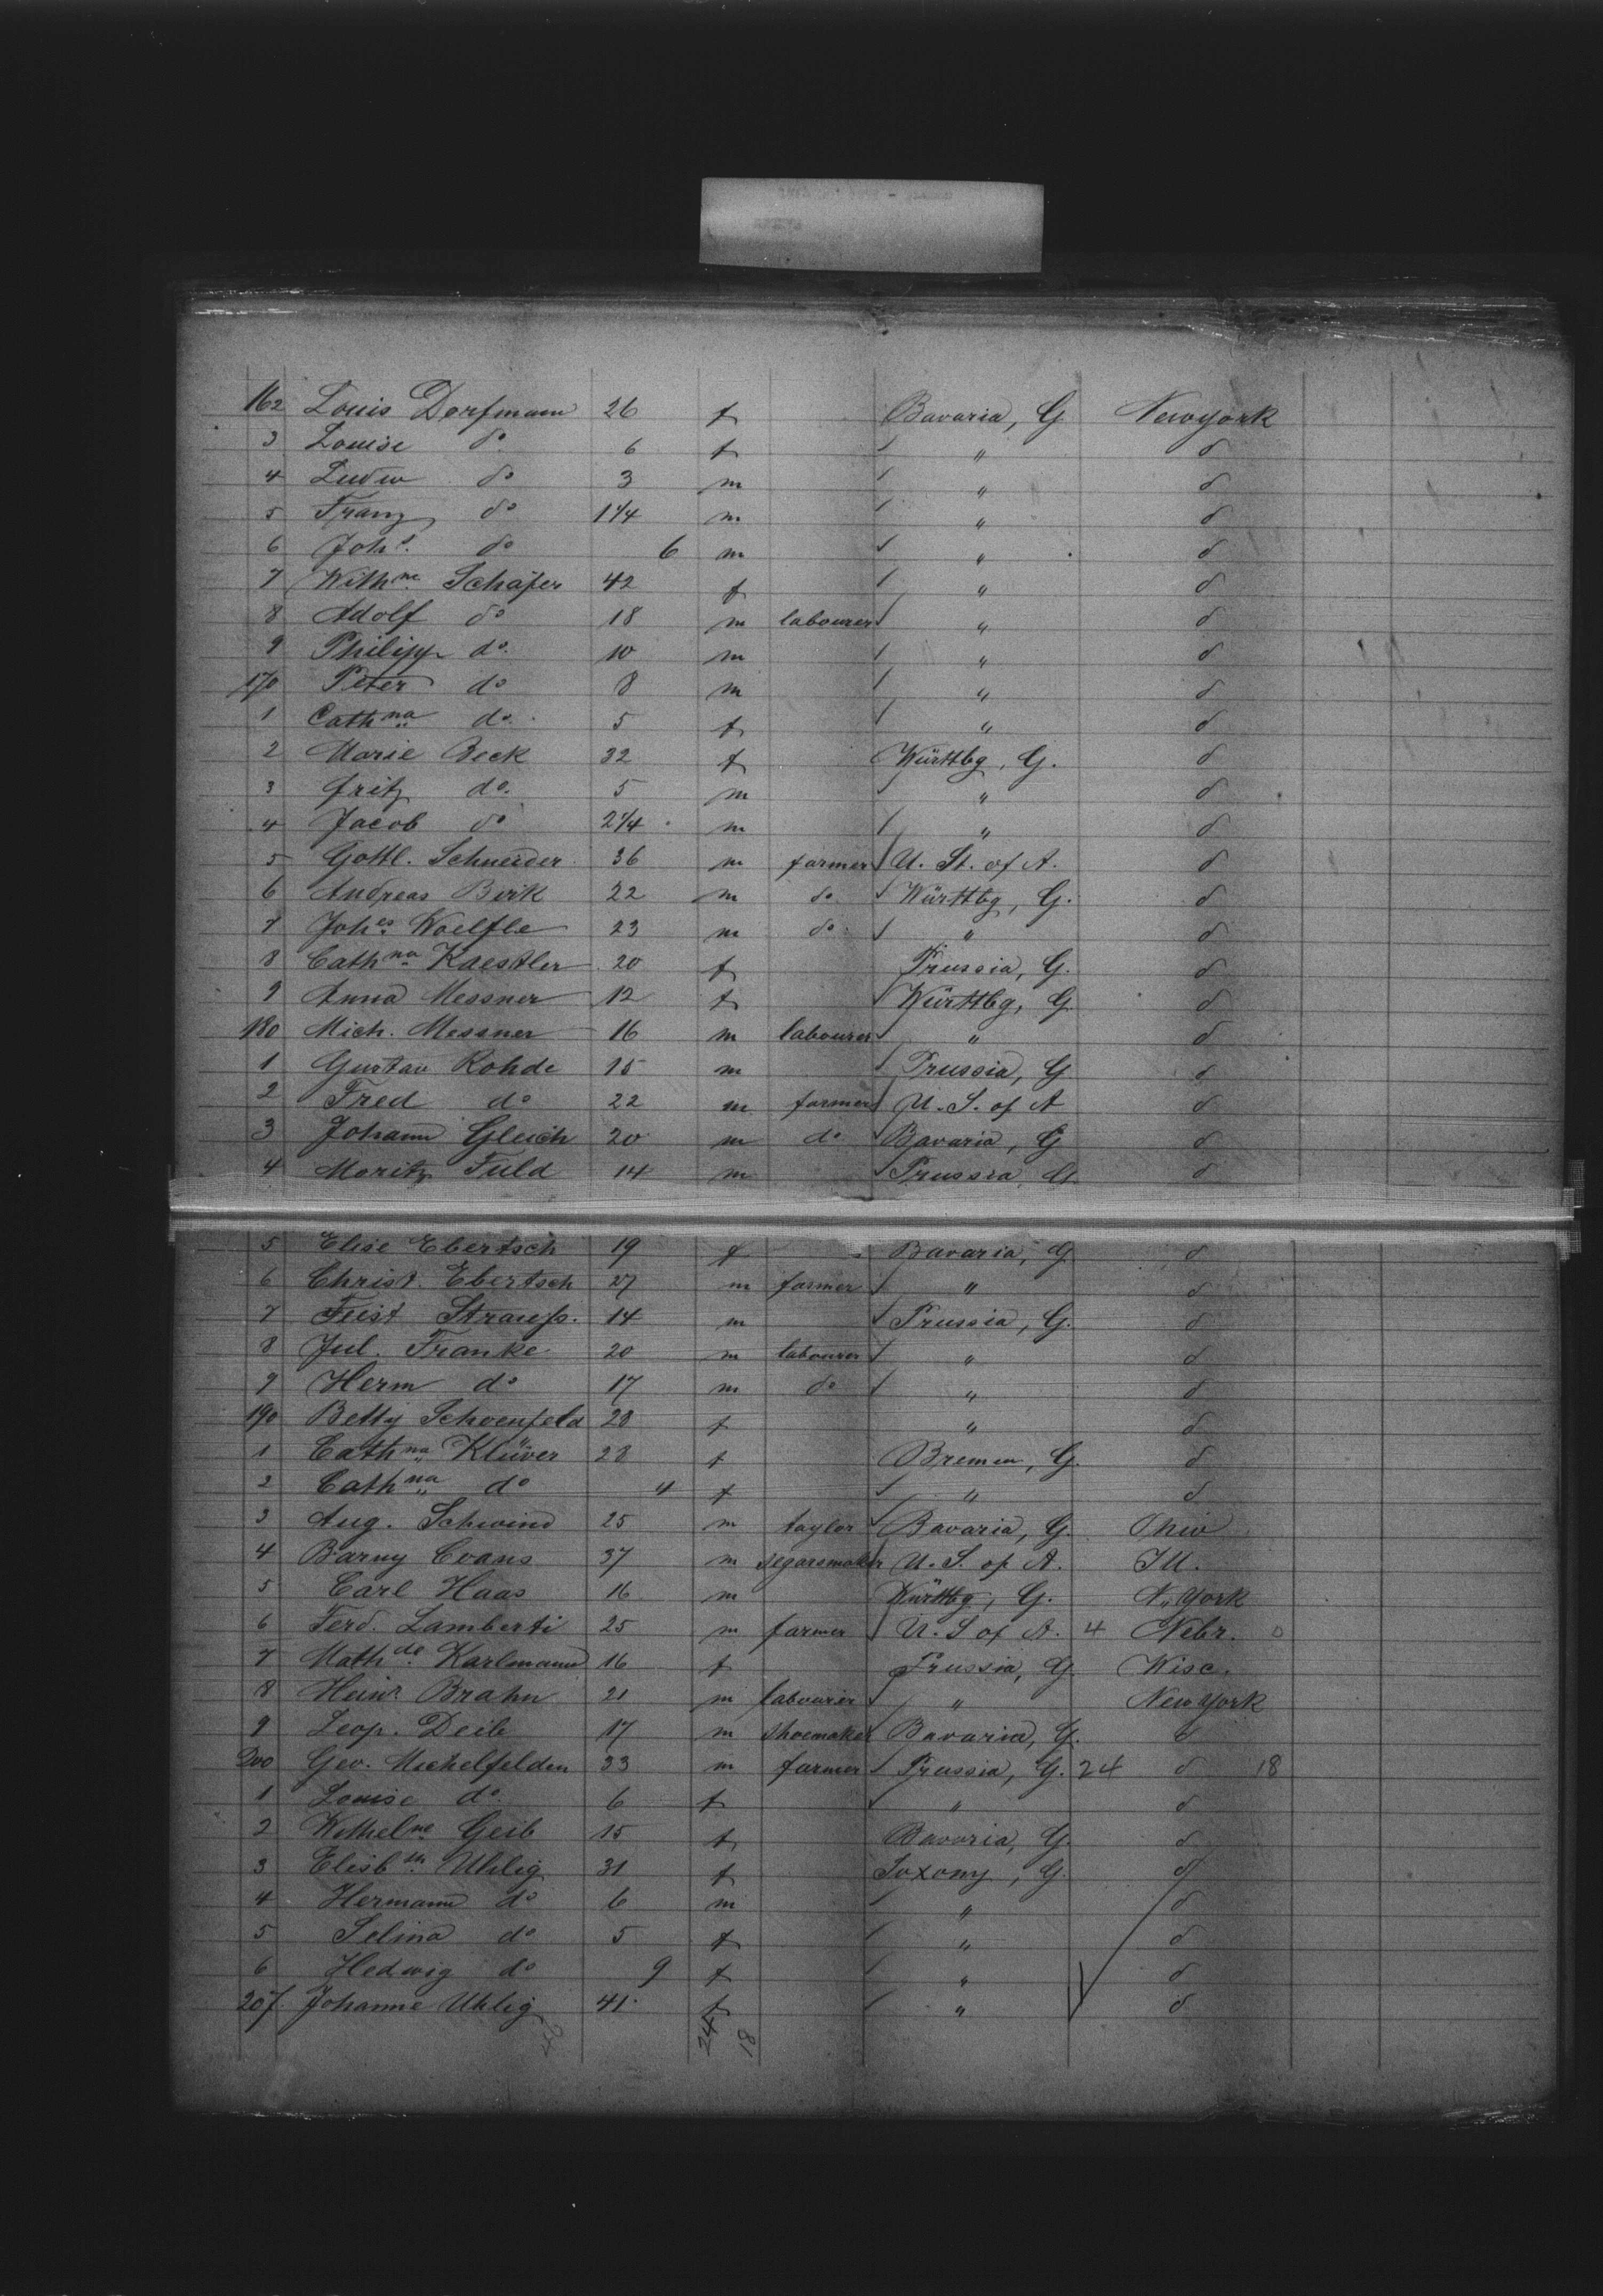 162 Louis Dorfmann 26 f Bavaria, G. Newyork
3 Louise do 6 f " d
4 Ludw do 3 m " d
5 Franz do 1 1/4 m " d
6 Johs. do 6 m " d
7 Wilhne Schäfer 42 f " d
8 Adolf do 18 m labourer " d
9 Philipp do. 10 m " d
170 Peter do 8 m " d
1 Cathna do. 5 f " d
2 Marie Beck 32 f Württbg, G. d
3 Fritz do. 5 m " d
4 Jacob do 2 1/4 m " d
5 Gottl. Schneider 36 m farmer U. St. of A. d
6 Andreas Birk 22 m do Württbg, G. d
7 Johes Woelfle 23 m do " d
8 Cathna Kaestler 20 f Prussia, G. d
9 Anna Messner 12 f Württbg, G d
180 Mich. Messner 16 m labourer " d
1 Gustav Rohde 15 m Prussia, G d
2 Fred do 22 m farmer U. S. of A d
3 Johann Gleich 20 m do Bavaria, G d
4 Moritz Fuld 14 m Prussia, G d
5 Elise Ebertsch 19 f Bavaria, G d
6 Christ. Ebertsch 27 m farmer " d
7 Feist Strauss. 14 m Prussia, G. d
8 Jul. Franke 20 m labourer " d
9 Herm do 17 m do " d
190 Betty Schoenfeld 28 f " d
1 Cathna Klüver 28 f Bremen, G. d
2 Cathna do 4 f " d
3 Aug. Schwind 25 m taylor Bavaria, G. Ohio
4 Barny Evans 37 m segarsmaker U. S. of A. Ill.
5 Carl Haas 16 m Württbg, G. N. York
6 Ferd. Lamberti 25 m farmer U. S of A. 4 Nebr. 0
7 Mathde Karlmann 16 f Prussia, G Wisc.
8 Heinr. Brahn 21 m labourer " New York
9 Leop. Deib 17 m shoemaker Bavaria, G. d
200 Geo. Michelfelden 33 m farmer Prussia, G. 24 d 18
1 Louise do. 6 f " d
2 Wilhelne Geib 15 f Bavaria, G. d
3 Elisbth Uhlig 31 f Saxony, G. d
4 Hermann do 6 m " d
5 Selina do 5 f " d
6 Hedwig do 9 f " d
207. Johanne Uhlig 41 f " d
24
18